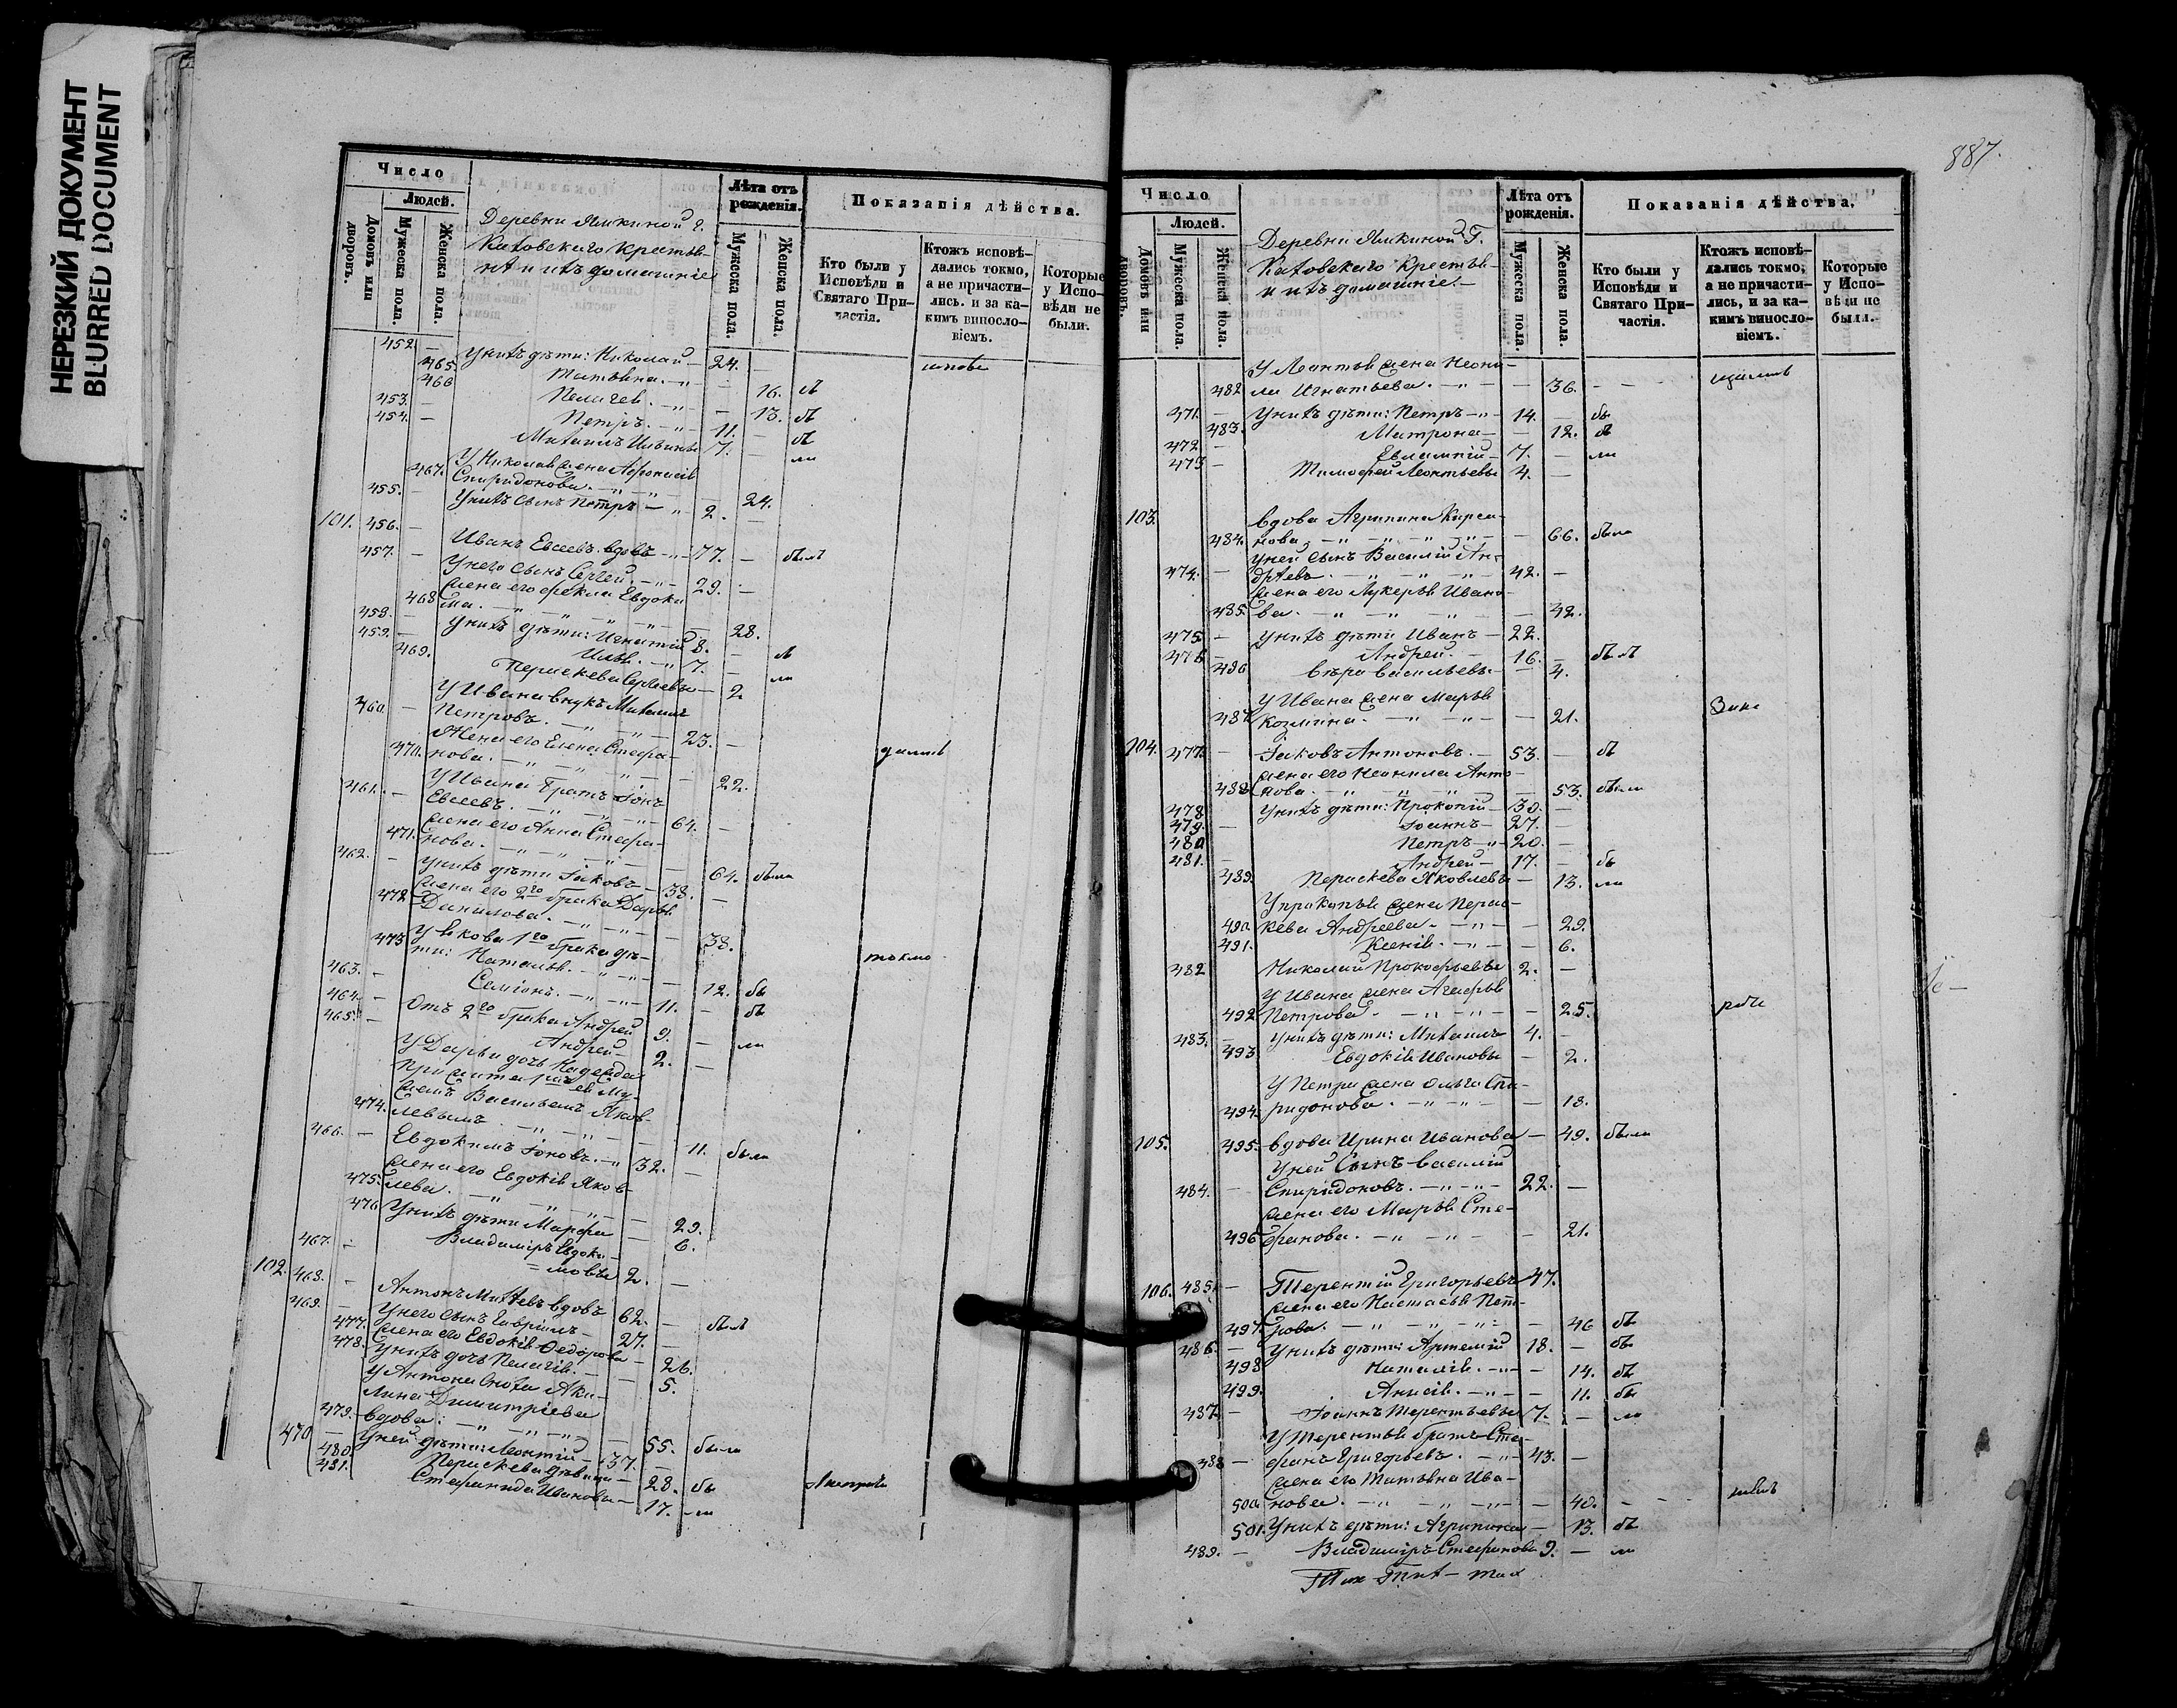 НЕРЕЗКИЙ ДОКУМЕНТ
BLURRED DOCUMENT
Число
Людей.
Домовъ или дворовъ.
Мужеска пола.
Женска пола.
Лѣта отъ рожденія.
Мужеска пола.
Женска пола.
Показанія дѣйства.
Кто были у Исповѣди и Святаго Причастія.
Ктожъ исповѣдались токмо, а не причастились. и за какимъ винословіемъ.
Которые у Исповѣди не были.
Деревни г.
Каховскаго крестья-
не и ихъ домашніе
452. У нихъ дѣти: Николай 24.
465. Татьяна. 16.
466 13.
453. Петръ. 11.
454. Михаилъ Ильины 7.
У Николая жена
467. Спиридонова. 24.
455. У нихъ сынъ Петръ 2.
101. 456. Иванъ Евсеевъ вдовъ 77. былъ
457. У него сынъ Сергей 29.
жена его Фекла Евдоки
468 ма. 28.
458. У нихъ дѣти: Игнатій 8.
459. Илья. 7.
469. Параскева Сергѣевы 2
У Ивана внукъ Михаилъ
460 Петровъ. 23.
Жена его Елена Стефа-
470. нова. 22.
У Ивана братъ Іонъ
461. Евсеевъ. 64.
жена его Анна Стефа-
471. нова. 64. была
462. У нихъ дѣти Іаковъ 38.
жена его 2го брака Дарья
472 Данилова. 38.
У Якова 1го брака дѣ- токмо
473 ти: Наталья. 12. бы
463. Семіонъ. 11.
464. Отъ 2го брака Андрей 9. ли
465. Андрей 2.
У Дарьи дочь Надежда
474. левымъ 11. была
466. Евдокимъ Іоновъ. 32.
жена его Евдокія Яков-
475. лева. 29.
476 У нихъ дѣти Марфа 6.
467. Владиміръ Евдоки-
мовы 2.
102. 468. Антонъ вдовъ 62. былъ
469. У него сынъ Гавріилъ 27.
477. жена его Евдокія Федорова 26.
478. У нихъ дочь Пелагія. 5.
У Антона сноха Аку-
лина Димитріева
479. вдова: 55. была
470 У ней дѣти: Леонтій 37.
480. Параскева дѣвица 28. бы
481. Стефанида Иванова 17. ли
887.
Число
Людей.
Домовъ или дворовъ.
Мужеска пола.
Женска пола.
Лѣта отъ рожденія.
Мужеска пола.
Женска пола.
Показанія дѣйства.
Кто были у Исповѣди и Святаго Причастія.
Ктожъ исповѣдались токмо, а не причастились, и за какимъ винословіемъ.
Которые у Исповѣди не были.
Деревни Г.
Каховскаго крестья-
и ихъ домашніе.
У Леонтья жена Неони-
482 ла Игнатьева. 36.
471. У нихъ дѣти: Петръ 14. бы
483. Матрона 12.
472 Евлампій 7. ли
473 Тимофей Леонтьевы 4.
103. Вдова Агрипина Кирса-
484. нова 66. была
У ней сынъ Василій Ан-
474. дрѣевъ. 42.
жена его Лукерья Ивано-
485. ва. 42.
475. У нихъ дѣти Иванъ 22.
476 Андрей. 16.
486 Вѣра Васильевы 4.
У Ивана жена Марья
487 Козмина. 21.
104. 477. Іаковъ Антоновъ. 53.
жена его Неонила Анто-
488 нова. 53. были
478 У нихъ дѣти: Прокопій 30.
479. Іоаннъ 27.
480 Петръ 20.
481. Андрей 17. бы
489. Параскева Яковлевы 13. ли
У Прокопья жена Парас-
490 кева Андреева. 29.
491. Ксенія. 6.
482 Николай Прокофьевы 2.
У Ивана жена Агафья
492 Петрова. 25.
483. У нихъ дѣти: Михаилъ 4.
493 Евдокія Ивановы 2.
У Петра жена Ольга Спи-
494. ридонова. 18.
105. 495. Вдова Ирина Иванова 49. была
У ней сынъ Василій
484. Спиридоновъ. 22.
жена его Марья Сте-
496 фанова. 21.
106. 485. Терентій Григорьевъ 47.
жена его Настасья Пет-
497 рова. 46
486. У нихъ дѣти: Артемій 18.
498 Наталія. 14.
499. Анисія. 11. бы
487 Іоаннъ Терентьевы 7. ли
У Терентья братъ Сте-
488 фанъ Григорьевъ. 43.
жена его Татьяна Ива-
500. нова. 40.
501. У нихъ дѣти: Агрипина 13.
489. Владиміръ Стефановы 9. ли